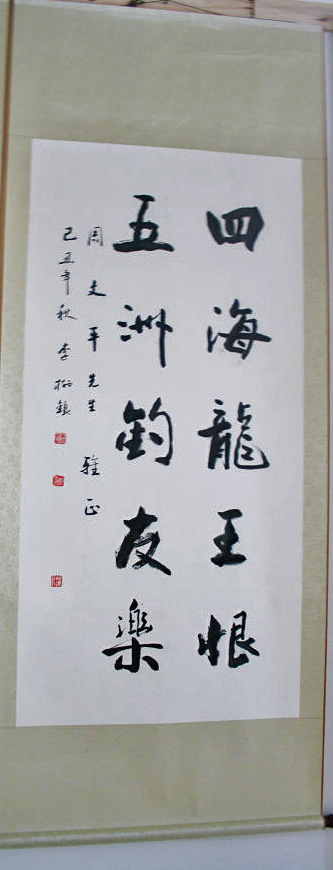 四海龍王恨
五洲釣友樂
周文平先生 雅正
己丑年秋 李 銀